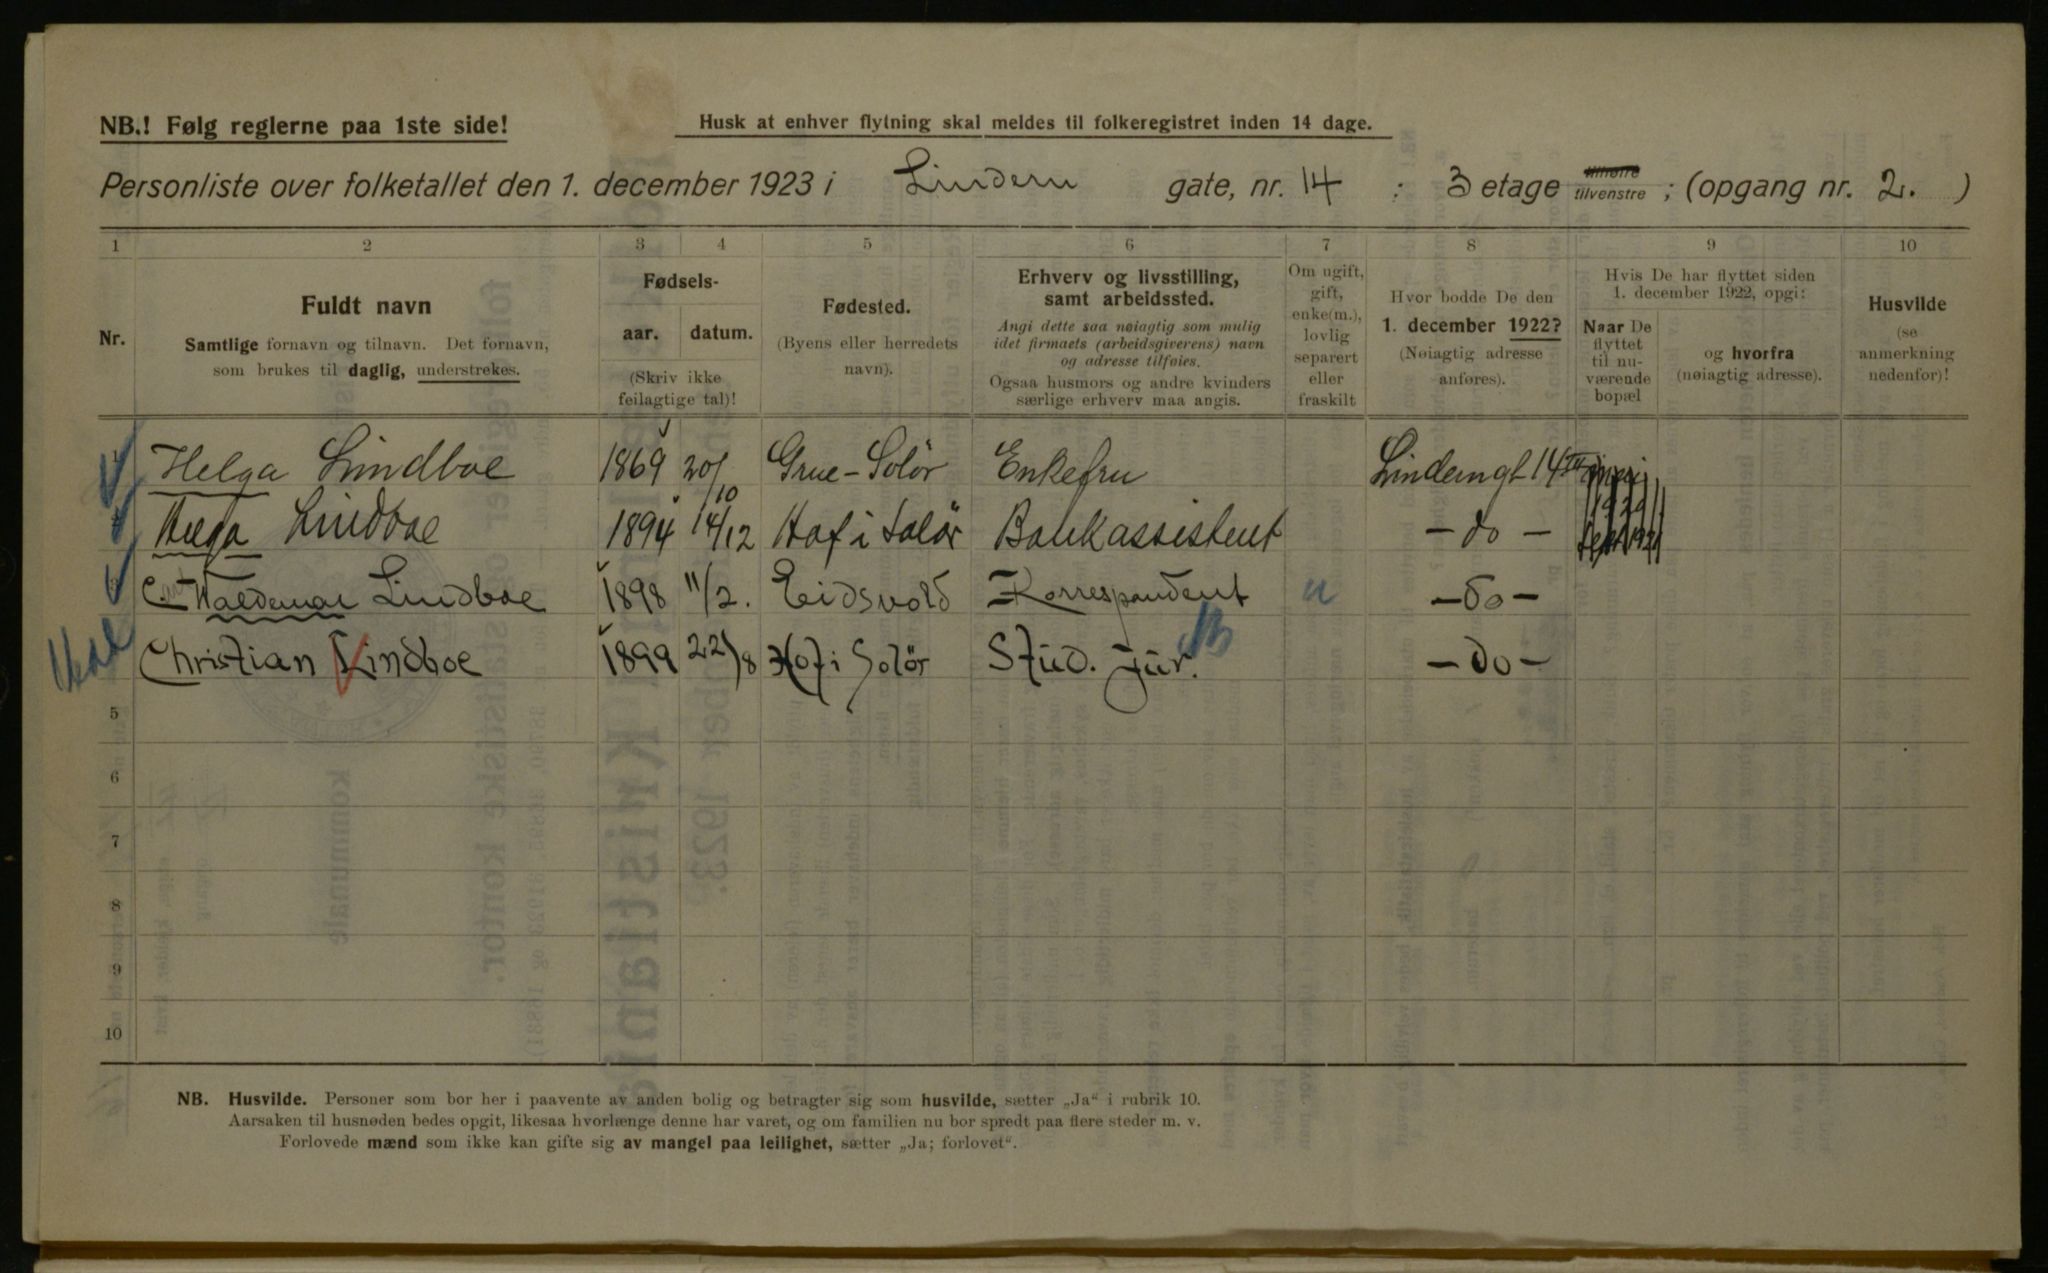 NB.! Følg reglerne paa 1ste side!
Husk at enhver flytning skal meldes til folkeregistret inden 14 dage.
Personliste over folketallet den 1. december 1923 i Lindern gate, nr. 14 : 3 etage tilhøire tilvenstre ; (opgang nr. 2. )
1 2 3 4 5 6 7 8 9 10
Nr.
Fuldt navn
Samtlige fornavn og tilnavn. Det fornavn,
som brukes til daglig, understrekes.
Fødsels-
aar. datum.
(Skriv ikke
feilagtige tal)!
Fødested.
(Byens eller herredets
navn).
Erhverv og livsstilling,
samt arbeidssted.
Angi dette saa nøiagtig som mulig
idet firmaets (arbeidsgiverens) navn
og adresse tilføies.
Ogsaa husmors og andre kvinders
særlige erhverv maa angis.
Om ugift,
gift,
enke(m.),
lovlig
separert
eller
fraskilt
Hvor bodde De den
1. december 1922?
(Nøiagtig adresse
anføres).
Hvis De har flyttet siden
1. december 1922, opgi:
Naar De
flyttet
til nu-
værende
bopæl
og hvorfra
(nøiagtig adresse).
Husvilde
(se
anmerkning
nedenfor)!
1 Helga Lindboe 1869 20/10 Grue-Solör Enkefru Linderngt 14 III
2 Helga Lindboe 1894 14/12 Hof i Solör Bankassistent - do -
3 C. Waldemar Lindboe 1898 11/2. Eidsvold Korrespondent u - do -
Christian Lindboe 1899 22/8 Hof i Solör Stud. jur. - do -
5
6
7
8
9
10
NB. Husvilde. Personer som bor her i paavente av anden bolig og betragter sig som husvilde, sætter „Ja“ i rubrik 10.
Aarsaken til husnøden bedes opgit, likesaa hvorlænge denne har varet, og om familien nu bor spredt paa flere steder m. v.
Forlovede mænd som ikke kan gifte sig av mangel paa leilighet, sætter „Ja; forlovet“.